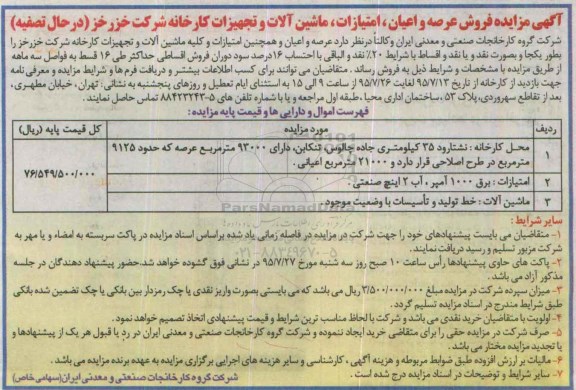 آگهی مزایده فروش عرصه و اعیان ، امتیازات ، ماشین آلات و تجهیزات کارخانه شرکت خزر خز (در حال تصفیه)
شرکت گروه کارخانجات صنعتی و معدنی ایران وکالتاً درنظر دارد عرصه و اعیان و همچنین امتیازات و کلیه ماشین آلات و تجهیزات کارخانه شرکت خزرخز را
بطور یکجا و بصورت نقد و یا نقد و اقساط با شرایط ۲۰٪ نقد و الباقی با احتساب ۱۶ درصد سود دوران فروش اقساطی حداکثر طی ۱۶ قسط به فواصل سه ماهه
از طریق مزایده با مشخصات و شرایط ذیل به فروش رساند . متقاضیان می توانند برای کسب اطلاعات بیشتر و دریافت فرم ها و شرایط مزایده و معرفی نامه
جهت بازدید از کارخانه از تاریخ ۹۵/۷/۱۳ لغایت ۹۵/۷/۲۶ از ساعت ۹ الی ۱۵ به استثنای ایام تعطیل و روزهای پنجشنبه به نشانی : تهران ، خیابان مطهری،
بعد از تقاطع سهروردی، پلاک ۵۳ ، ساختمان اداری محیا ، طبقه اول مراجعه و یا با شماره تلفن های ۵-۸۸۴۲۳۲۴۳ تماس حاصل نمایند.
فهرست اموال و دارایی ها و قیمت پایه مزایده :
ردیف مورد مزایده کل قیمت پایه (ریال)
۱ محل کارخانه : نشتارود ۳۵ کیلومتری جاده چالوس، تنکابن، دارای ۹۳۰۰۰ مترمربع عرصه که حدود ۹۱۲۵
مترمربع در طرح اصلاحی قرار دارد و ۲۱۰۰۰ مترمربع اعیانی .
۷۶/۵۴۹/۵۰۰/۰۰۰
۲ امتیازات : برق ۱۰۰۰ آمپر ، آب ۲ اینچ صنعتی .
۳ ماشین آلات : خط تولید و تأسیسات با وضعیت موجود.
سایر شرایط :
۱- متقاضیان می بایست پیشنهادهای خود را جهت شرکت در مزایده در فاصله زمانی یاد شده براساس اسناد مزایده در پاکت سربسته به امضاء و یا مهر به
شرکت مزبور تسلیم و رسید دریافت نمایند.
۲- پاکت های حاوی پیشنهادها رأس ساعت ۱۰ صبح روز سه شنبه مورخ ۹۵/۷/۲۷ در نشانی فوق گشوده خواهد شد. حضور پیشنهاد دهندگان در جلسه
مذکور آزاد می باشد .
۳- میزان سپرده شرکت در مزایده مبلغ ۳/۵۰۰/۰۰۰/۰۰۰ ریال می باشد که می بایستی بصورت واریز نقدی یا چک رمزدار بین بانکی یا چک تضمین شده بانکی
طبق شرایط مندرج در اسناد مزایده تسلیم گردد .
۴- اولویت با متقاضیان خرید نقدی می باشد و شرکت با لحاظ مناسب ترین شرایط و قیمت پیشنهادی اتخاذ تصمیم خواهد نمود.
۵- صرف شرکت در مزایده حقی را برای متقاضی خرید ایجاد ننموده و شرکت گروه کارخانجات صنعتی و معدنی ایران در رد یا قبول هر یک از پیشنهادها و
یا تجدید مزایده مختار می باشد.
۶- مالیات بر ارزش افزوده طبق ضوابط مربوطه و هزینه آگهی ، کارشناسی و سایر هزینه های اجرایی برگزاری مزایده به عهده برنده مزایده می باشد .
۷- سایر شرایط و توضیحات در اسناد مزایده درج شده است .
شرکت گروه کارخانجات صنعتی و معدنی ایران (سهامی خاص)